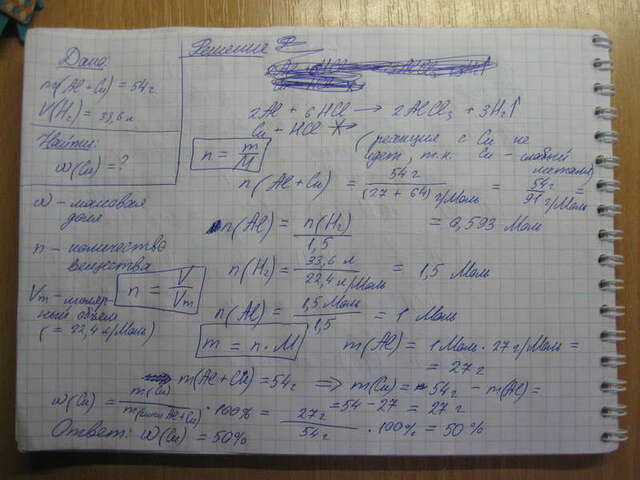 Дано:
m(Al + Cu) = 54 г
V(H₂) = 33,6 л
Найти:
ω(Cu) = ?
ω - массовая
доля
n - количество
вещества
Vm - моляр-
ный объём
(= 22,4 л/Моль)
Решение
2Al + 6HCl → 2AlCl₃ + 3H₂↑
Cu + HCl ↛
(реакция с Cu не
идет, т.к. Cu - слабый
металл)
n = m/M
n(Al + Cu) = 54 г/(27 + 64) г/Моль = 54 г/91 г/Моль =
= 0,593 Моль
n(Al) = n(H₂)/1,5
n(H₂) = 33,6 л/22,4 л/Моль = 1,5 Моль
n = V/Vm
n(Al) = 1,5 Моль/1,5 = 1 Моль
m = n · M
m(Al) = 1 Моль · 27 г/Моль =
= 27 г
m(Al + Cu) = 54 г ⇒ m(Cu) = 54 г - m(Al) =
= 54 - 27 = 27 г
ω(Cu) = m(Cu)/m(смеси Al + Cu) · 100% = 27 г/54 г · 100% = 50%
Ответ: ω(Cu) = 50%